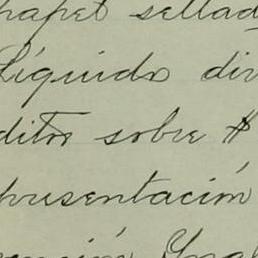 papel sellad
Líquido div
ditor sobre $
presentación